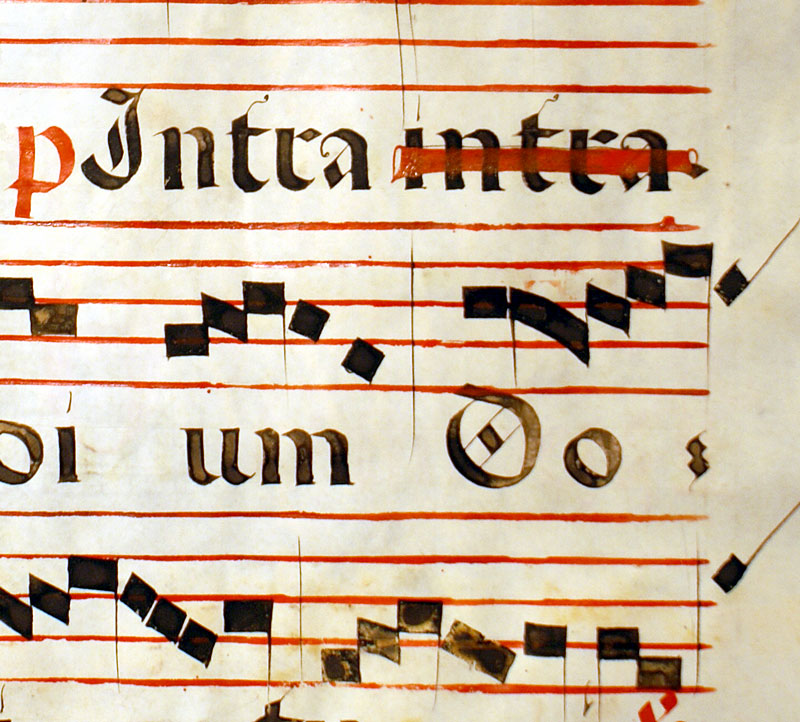 p Intra intra
oi um Oo